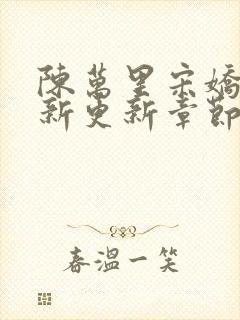 陳萬里宋嬌
新更新章節
春溫一笑